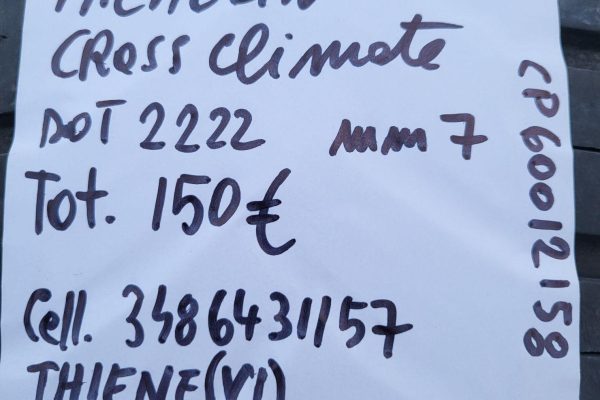 MICHELIN
CROSS Climate
DOT 2222 mm 7
Tot. 150€
Cell. 3486431157
THIENE (VI)
CP60012158